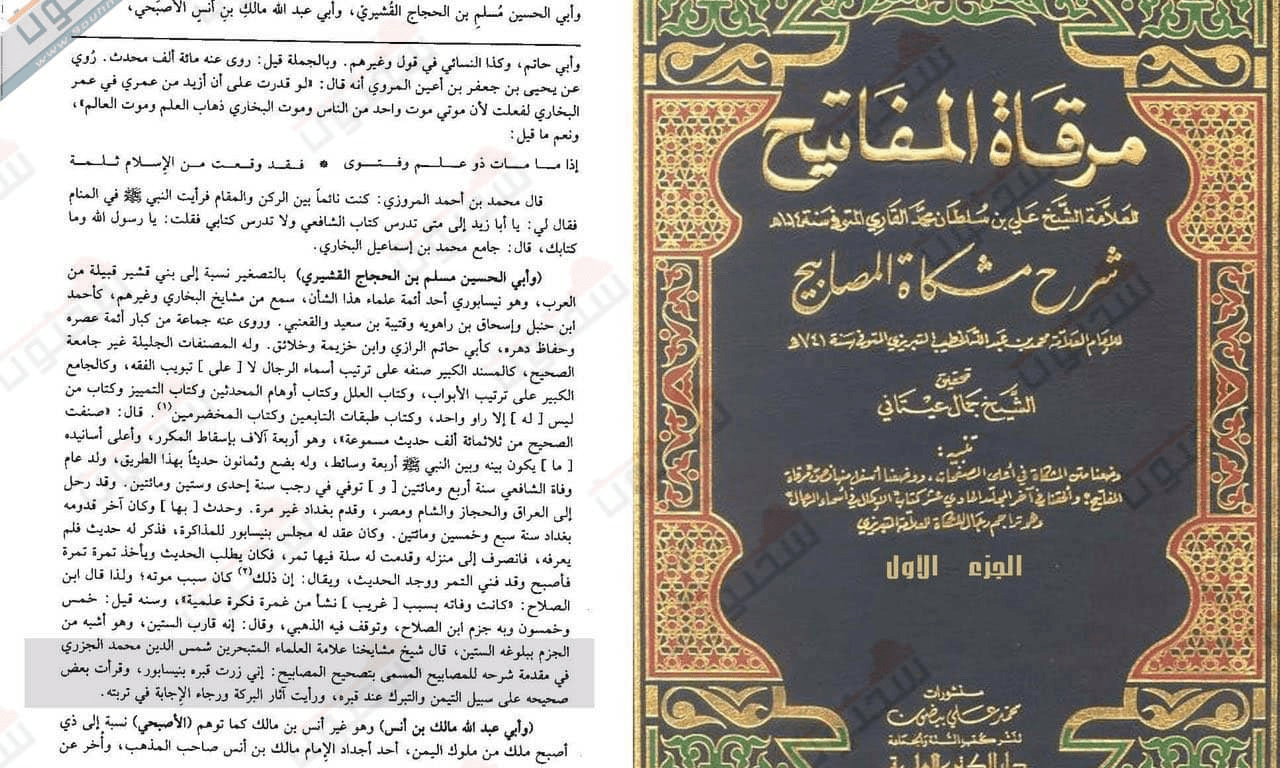 وأبي الحسين مُسلمِ بن الحجاج القُشيريّ، وأبي عبد الله مالكِ بن أنسِ الأصبَحي،
وأبي حاتم، وكذا النسائي في قول وغيرهم. وبالجملة قيل: روى عنه مائة ألف محدث. رُوي
عن يحيى بن جعفر بن أعين المروي أنه قال: «لو قدرت على أن أزيد من عمري في عمر
البخاري لفعلت لأن موتي موت واحد من الناس وموت البخاري ذهاب العلم وموت العالم»،
ونعم ما قيل:
إذا ما مات ذو علم وفتوى * فقد وقعت من الإسلام ثلمة
قال محمد بن أحمد المروزي: كنت نائماً بين الركن والمقام فرأيت النبي ﷺ في المنام
فقال لي: يا أبا زيد إلى متى تدرس كتاب الشافعي ولا تدرس كتابي فقلت: يا رسول الله وما
كتابك، قال: جامع محمد بن إسماعيل البخاري.
(وأبي الحسين مسلم بن الحجاج القشيري) بالتصغير نسبة إلى بني قشير قبيلة من
العرب، وهو نيسابوري أحد أئمة علماء هذا الشأن، سمع من مشايخ البخاري وغيرهم، كأحمد
ابن حنبل وإسحاق بن راهويه وقتيبة بن سعيد والقعنبي. وروى عنه جماعة من كبار أئمة عصره
وحفاظ دهره، كأبي حاتم الرازي وابن خزيمة وخلائق. وله المصنفات الجليلة غير جامعة
الصحيح، كالمسند الكبير صنفه على ترتيب أسماء الرجال لا [ على ] تبويب الفقه، وكالجامع
الكبير على ترتيب الأبواب، وكتاب العلل وكتاب أوهام المحدثين وكتاب التمييز وكتاب من
ليس [ له ] إلا راو واحد، وكتاب طبقات التابعين وكتاب المخضرمين(١). قال: «صنفت
الصحيح من ثلاثمائة ألف حديث مسموعة»، وهو أربعة آلاف بإسقاط المكرر، وأعلى أسانيده
[ ما ] يكون بينه وبين النبي ﷺ أربعة وسائط، وله بضع وثمانون حديثاً بهذا الطريق، ولد عام
وفاة الشافعي سنة أربع ومائتين [ و ] توفي في رجب سنة إحدى وستين ومائتين. وقد رحل
إلى العراق والحجاز والشام ومصر، وقدم بغداد غير مرة. وحدث [ بها ] وكان آخر قدومه
بغداد سنة سبع وخمسين ومائتين. وكان عقد له مجلس بنيسابور للمذاكرة، فذكر له حديث فلم
يعرفه، فانصرف إلى منزله وقدمت له سلة فيها تمر، فكان يطلب الحديث ويأخذ تمرة تمرة
فأصبح وقد فني التمر ووجد الحديث، ويقال: إن ذلك(٢) كان سبب موته؛ ولذا قال ابن
الصلاح: «كانت وفاته بسبب [ غريب ] نشأ من غمرة فكرة علمية»، وسنه قيل: خمس
وخمسون وبه جزم ابن الصلاح، وتوقف فيه الذهبي، وقال: إنه قارب الستين، وهو أشبه من
الجزم ببلوغه الستين، قال شيخ مشايخنا علامة العلماء المتبحرين شمس الدين محمد الجزري
في مقدمة شرحه للمصابيح المسمى بتصحيح المصابيح: إني زرت قبره بنيسابور، وقرأت بعض
صحيحه على سبيل التيمن والتبرك عند قبره، ورأيت آثار البركة ورجاء الإجابة في تربته.
(وأبي عبد الله مالك بن أنس) وهو غير أنس بن مالك كما توهم (الأصبحي) نسبة إلى ذي
أصبح ملك من ملوك اليمن، أحد أجداد الإمام مالك بن أنس صاحب المذهب، وأُخر عن
مرقاة المفاتيح
للعلامة الشيخ علي بن سلطان محمد القاري المتوفى سنة ١٠١٤هـ
شرح مشكاة المصابيح
للإمام العلامة محمد بن عبد الله الخطيب التبريزي المتوفى سنة ٧٤١هـ
تحقيق
الشيخ جمال عيتاني
تنبيه:
وضعنا متن المشكاة في أعلى الصفحات، ووضعنا أسفل منها نص مرقاة
المفاتيح، وألحقنا في آخر المجلد الحادي عشر كتاب الإكمال في أسماء الرجال
وهو تراجم رجال المشكاة للعلامة التبريزي
الجزء الأول
منشورات
محمد علي بيضون
لنشر كتب السنة والجماعة
دار الكتب العلمية